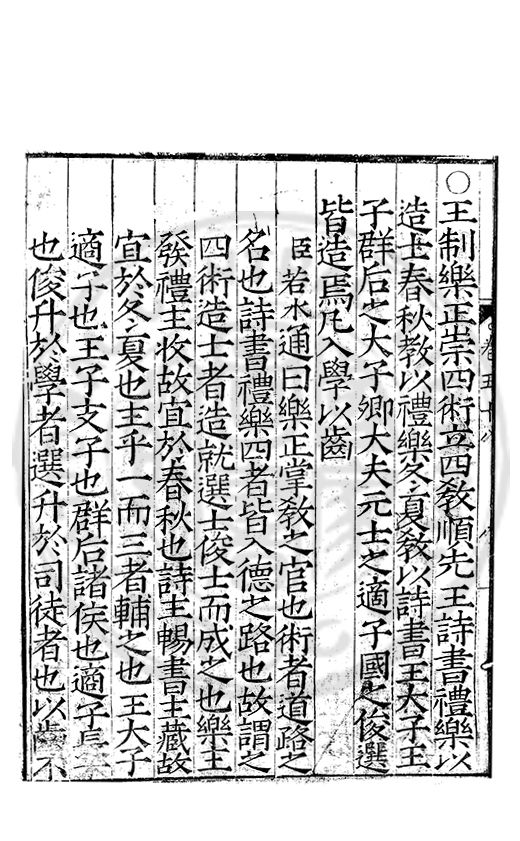 ○王制樂正崇四術立四教順先王詩書禮樂以
造士春秋教以禮樂冬夏教以詩書王大子王
子群后之大子卿大夫元士之適子國之俊選
皆造焉凡入學以齒
臣若水通曰樂正掌教之官也術者道路之
名也詩書禮樂四者皆入德之路也故謂之
四術造士者造就選士俊士而成之也樂主
發禮主收故宜於春秋也詩主暢書主藏故
宜於冬夏也主乎一而三者輔之也王大子
適子也王子支子也群后諸侯也適子長子
也俊升於學者選升於司徒者也以齒不
卷五十